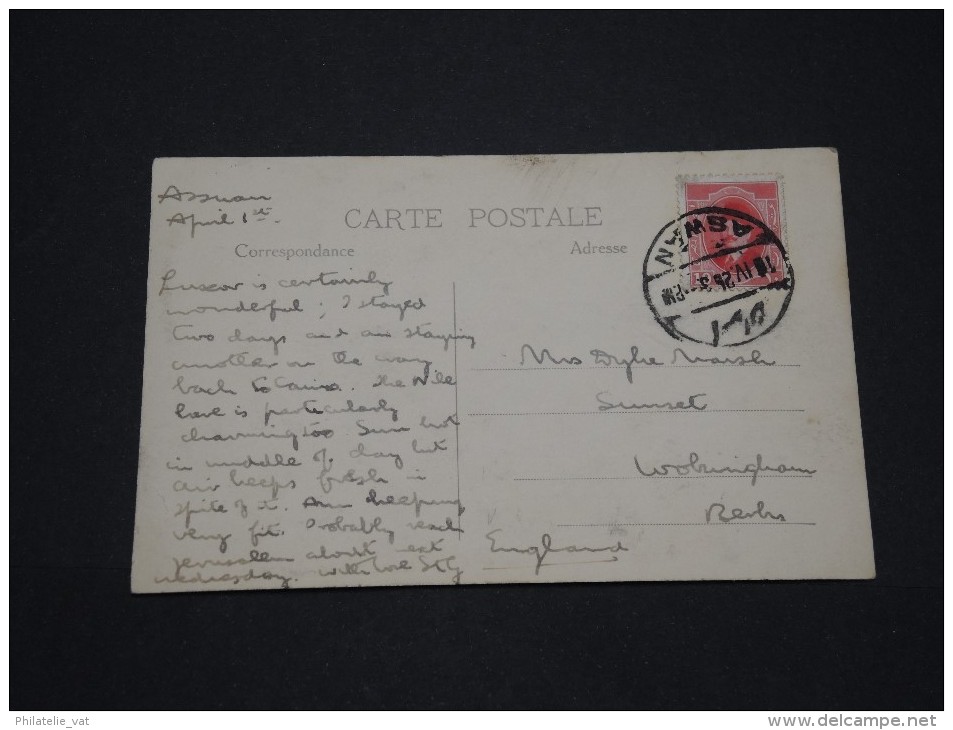 Assuan
April 1st.
CARTE POSTALE
Correspondance
Adresse
Luxor is certainly
wonderful; I stayed
two days and am staying
another on the way
back to Cairo. The Nile
here is particularly
charming too Sun hot
in middle of day but
air keeps fresh in
spite of it. Am keeping
very fit. Probably reach
Jerusalem about
Wednesday. With love
ASWAN
IV.26
PM
Mrs Dyke Marsh
Sunset
Wokingham
Berks
England
Philatelie_vat
www.delcampe.net